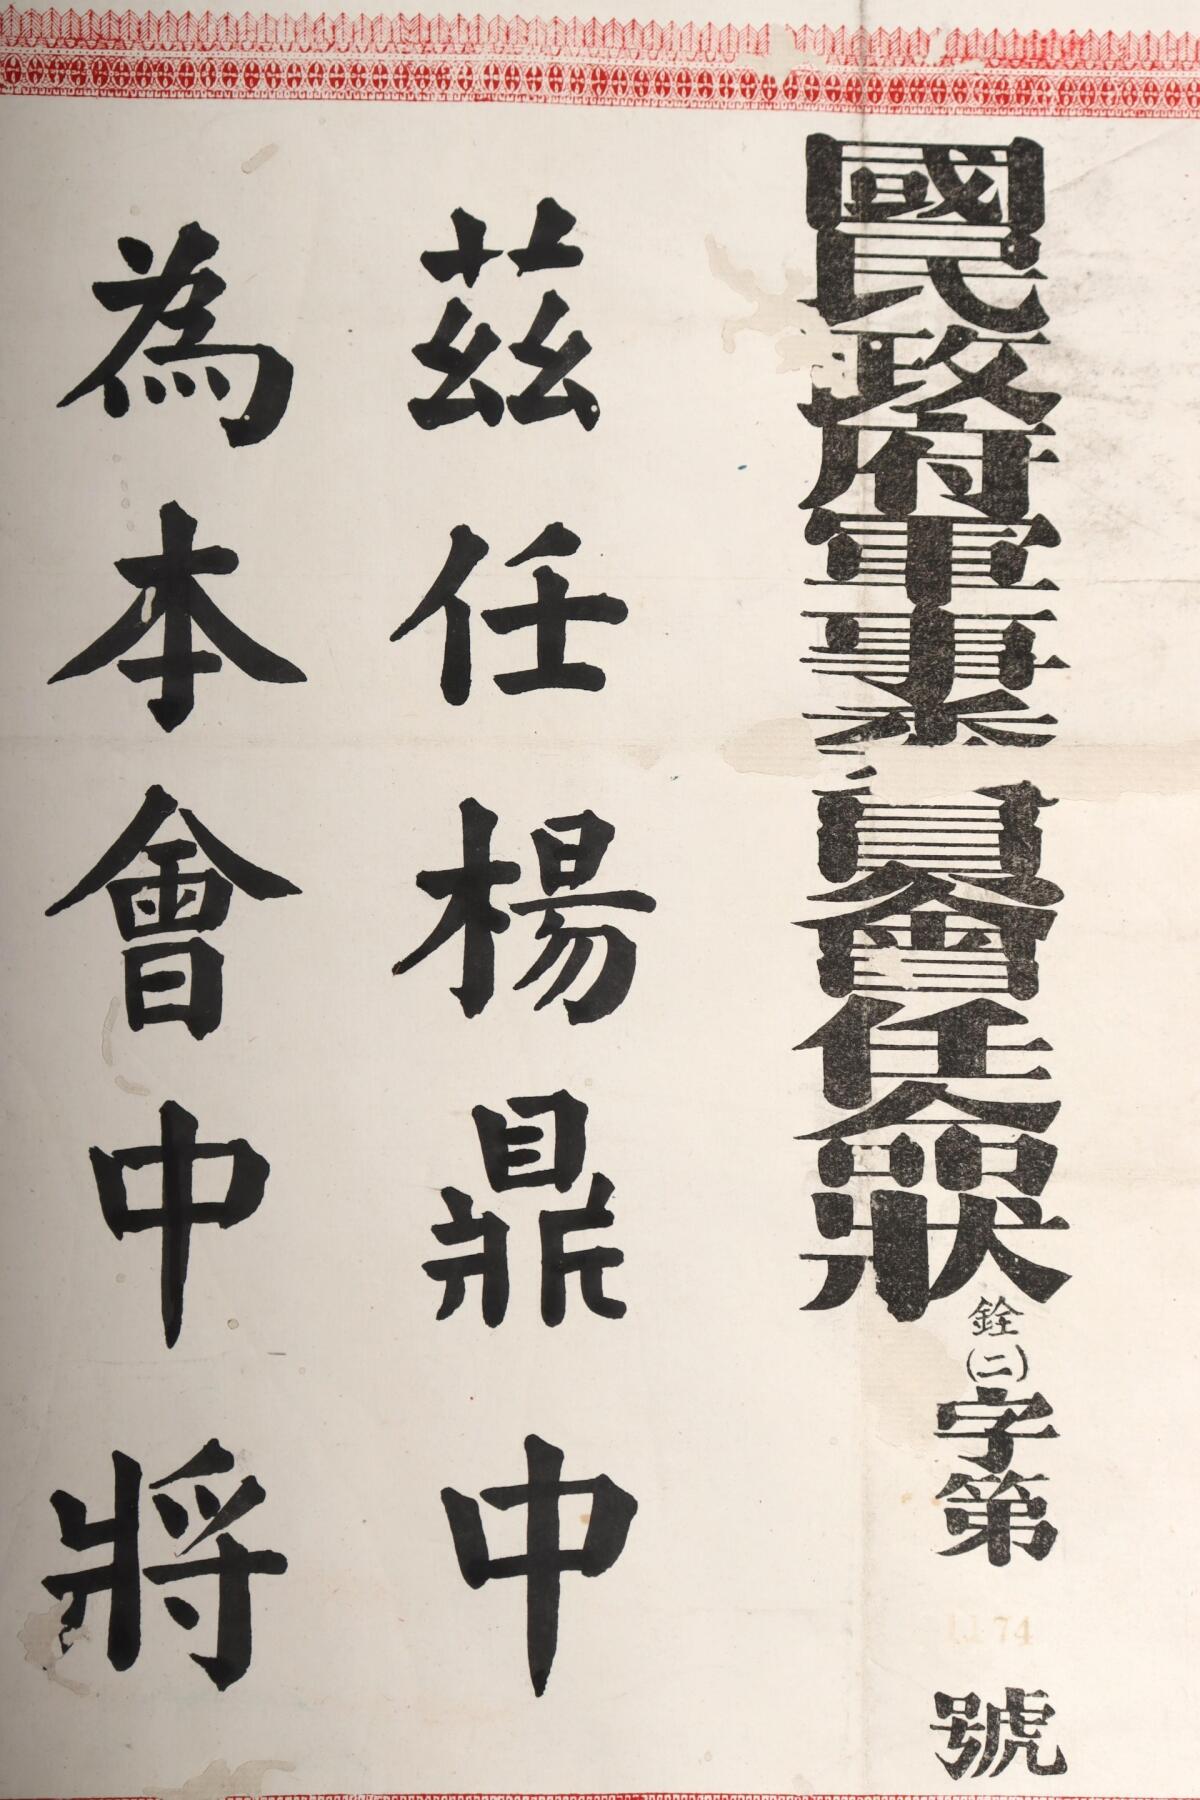 國民政府軍事委員會任命狀
銓(二)字第1174號
茲任楊鼎中
為本會中將